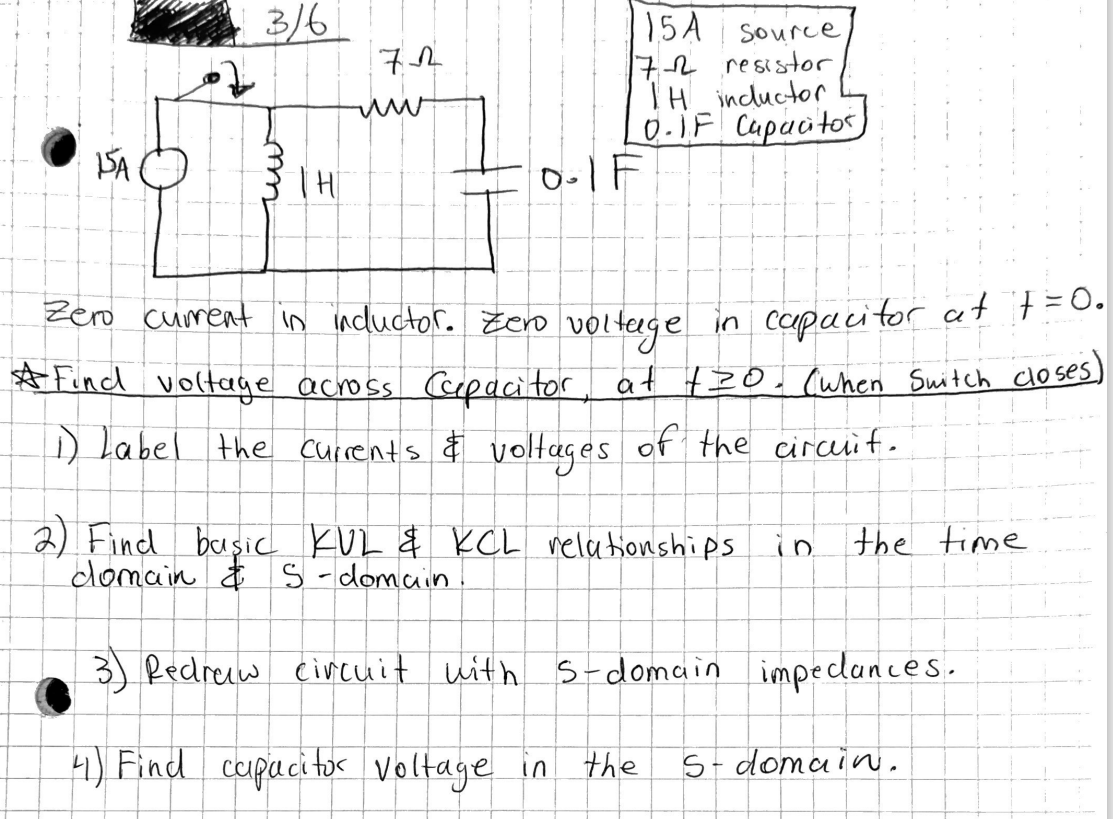 3/6
15A source
7Ω resistor
1H inductor
0.1F Capacitor
7Ω
15A
1H
0.1F
Zero current in inductor. Zero voltage in capacitor at t=0.
☆Find voltage across Capacitor, at t≥0. (when Switch closes)
1) Label the currents & voltages of the circuit.
2) Find basic KVL & KCL relationships in the time
domain & S-domain.
3) Redraw circuit with s-domain impedances.
4) Find capacitor voltage in the s-domain.